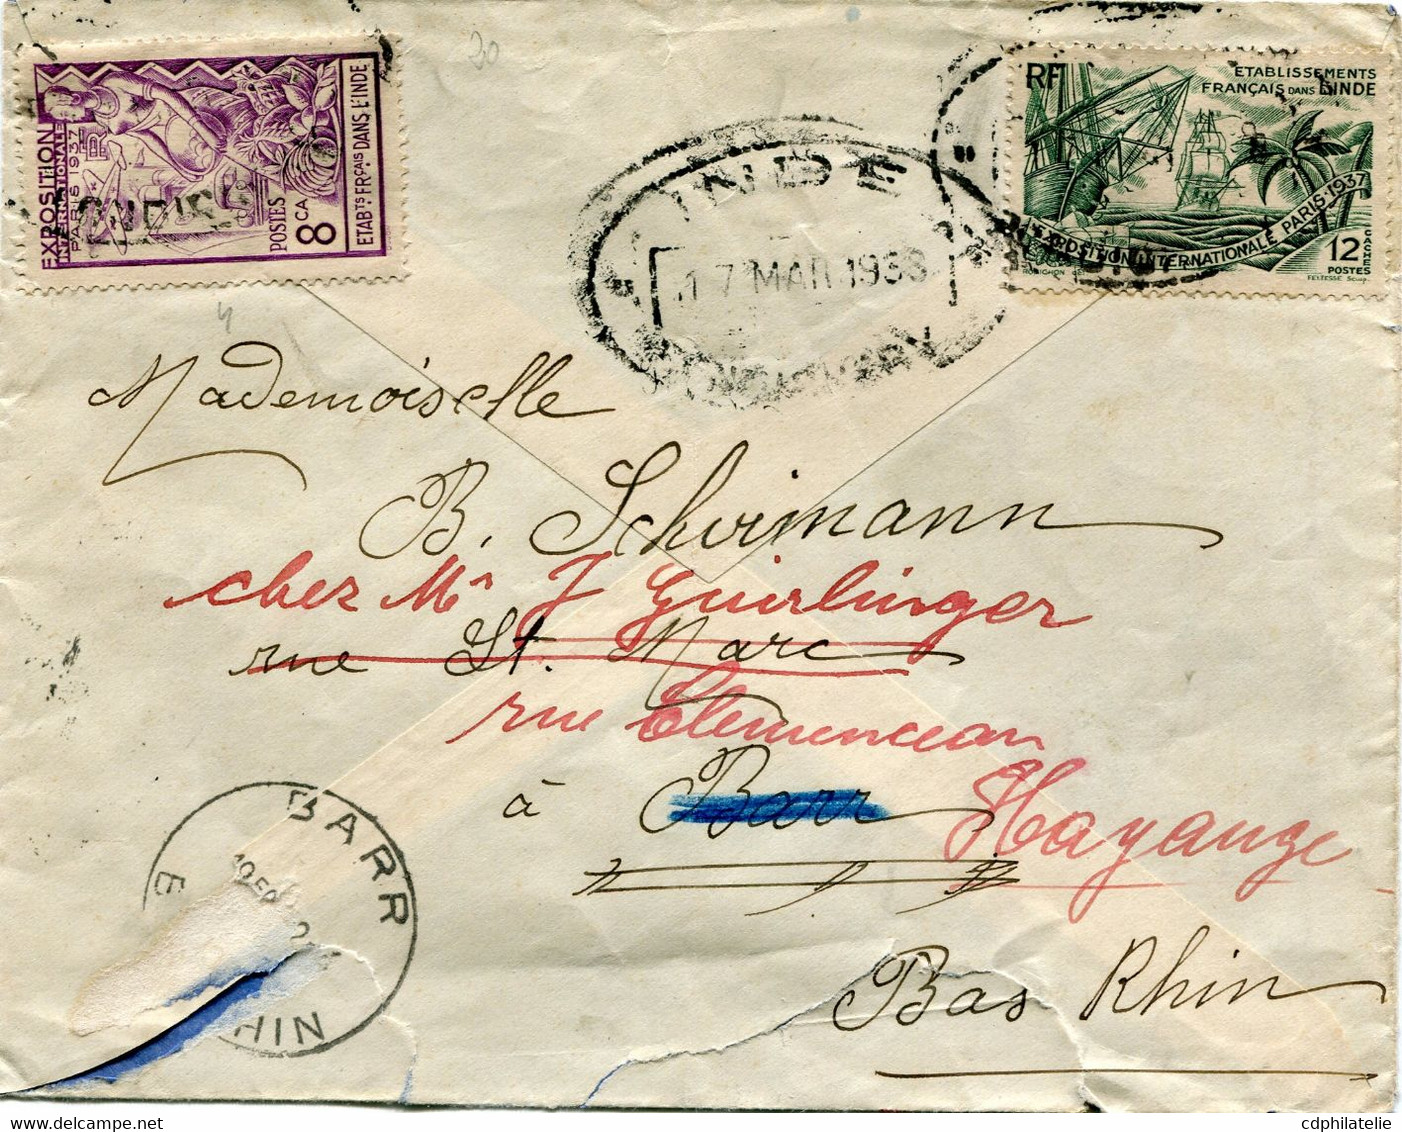 EXPOSITION
INTERNATIONALE
PARIS 1937
RF
POSTES
8 CA
ETABTS FRÇAIS DANS L'INDE
20
INDE
17 MAR 1938
PONDICHERY
RF
ETABLISSEMENTS
FRANÇAIS DANS L'INDE
EXPOSITION INTERNATIONALE PARIS-1937
12
CACHES
POSTES
FELTESSE SCULP.
4
Mademoiselle
B. Schirmann
chez Mr J Guirlinger
rue St. Marc
rue Clemenceau
à Barr Hayange
Bas Rhin
BARR
RHIN
cdphilatelie